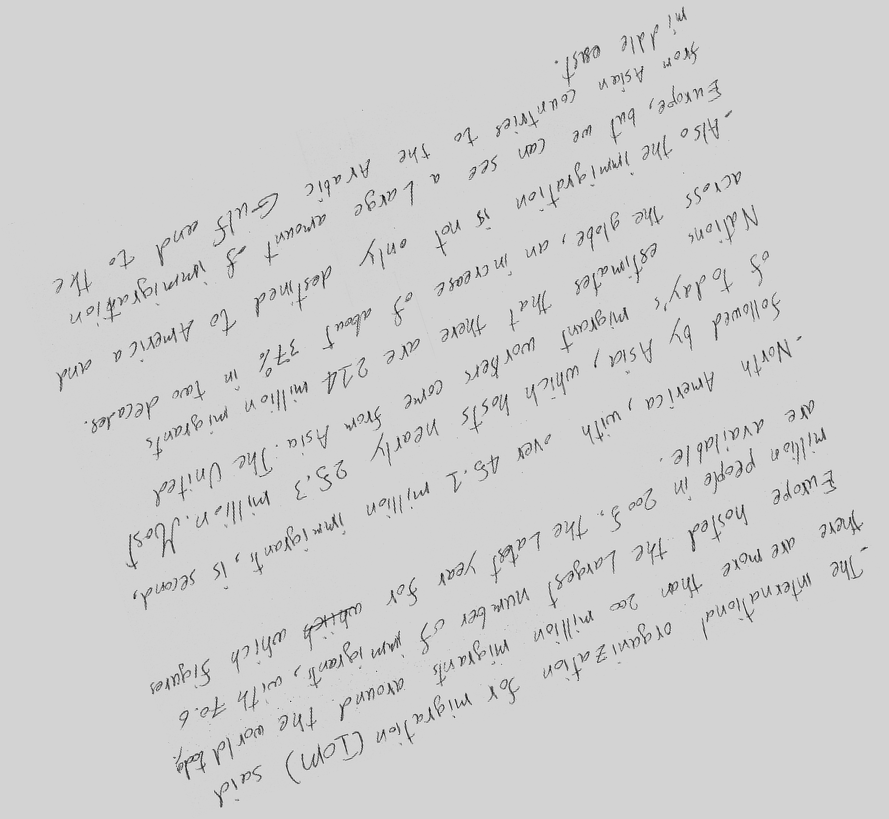 - The international organization for migration (IOM) said
there are more than 200 million migrants around the world today.
Europe hosted the Largest number of immigrants, with 70.6
million people in 2005. The Latest year for which which figures
are available.
- North America, with over 45.1 million immigrants, is second,
followed by Asia, which hosts nearly 25.3 million. Most
of today's migrant workers come from Asia. The United
Nations estimates that there are 214 million migrants
across the globe, an increase of about 37% in two decades.
- Also the immigration is not only destined to America and
Europe, but we can see a Large amount of immigration
from Asian countries to the Arabic Gulf and to the
middle east.